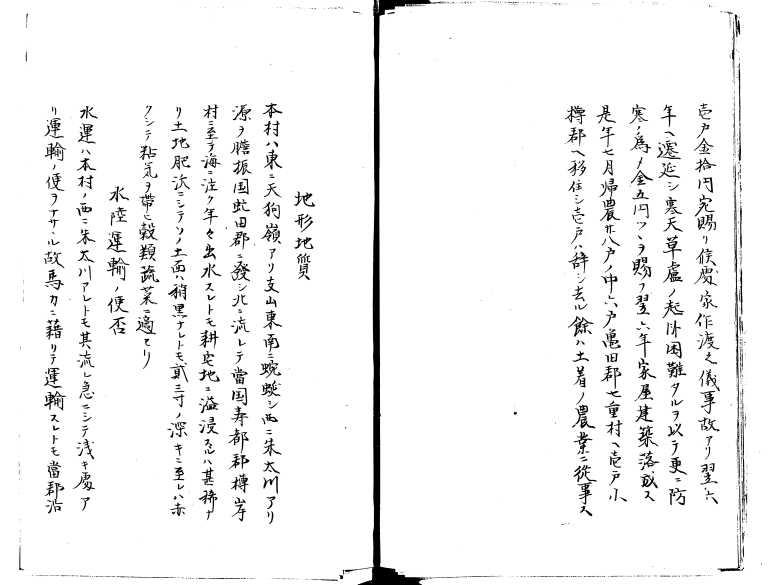 壱戸金拾円宛賜リ候処家作渡之儀事故アリ翌六
年ヘ遷延シ寒天草盧ノ起臥困難タルヲ以テ更ニ防
寒ノ為メ金五円ツヽヲ賜フ翌六年家屋建築落成ス
是年七月帰農廿八戸ノ中六戸亀田郡七重村ヘ壱戸小
樽郡ヘ移住シ壱戸ハ辞シ去ル餘ハ土着ノ農業ニ従事ス
地形地質
本村ハ東ニ天狗嶺アリ支山東南ニ蜿蜒シ西ニ朱太川アリ
源ヲ膽振国虻田郡ニ發シ北ニ流レテ當国寿都郡樽岸
村ニ至テ海ニ注ク年々出水スレトモ耕宅地ニ溢浸スルハ甚稀ナ
リ土地肥沃ニシテソノ土面ハ稍黒ナレトモ貳三寸ノ深キニ至レハ赤
クシテ粘気ヲ帯ヒ穀類蔬菜ニ適セリ
水陸運輸ノ便否
水運ハ本村ノ西ニ朱太川アレトモ其流レ急ニシテ浅キ處ア
リ運輸ノ便ヲナサヽル故馬力ニ藉リテ運輸スレトモ當郡沿